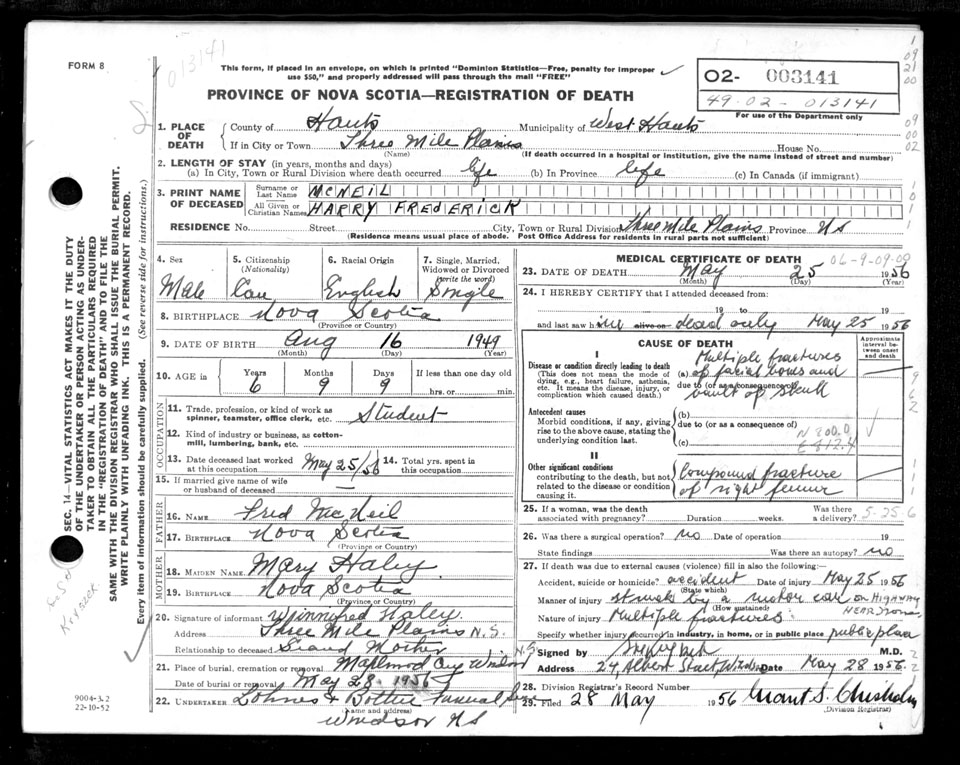 FORM 8
013141
This form, if placed in an envelope, on which is printed "Dominion Statistics—Free, penalty for improper
use $50," and properly addressed will pass through the mail "FREE"
02- 003141
49-02- 013141
For use of the Department only
PROVINCE OF NOVA SCOTIA—REGISTRATION OF DEATH
1. PLACE OF DEATH
County of Hants Municipality of West Hants
If in City or Town Three Mile Plains House No.
(Name) (If death occurred in a hospital or institution, give the name instead of street and number)
2. LENGTH OF STAY (in years, months and days)
(a) In City, Town or Rural Division where death occurred life (b) In Province life (c) In Canada (if immigrant)
3. PRINT NAME OF DECEASED
Surname or Last Name MCNEIL
All Given or Christian Names HARRY FREDERICK
RESIDENCE No. Street City, Town or Rural Division Three Mile Plains Province NS
(Residence means usual place of abode. Post Office Address for residents in rural parts not sufficient)
4. Sex Male
5. Citizenship (Nationality) Can
6. Racial Origin English
7. Single, Married, Widowed or Divorced (write the word) Single
8. BIRTHPLACE Nova Scotia
(Province or Country)
9. DATE OF BIRTH Aug 16 1949
(Month) (Day) (Year)
10. AGE in Years 6 Months 9 Days 9 If less than one day old
hrs. or min.
OCCUPATION
11. Trade, profession, or kind of work as spinner, teamster, office clerk, etc. Student
12. Kind of industry or business, as cotton-mill, lumbering, bank, etc.
13. Date deceased last worked at this occupation May 25/56
14. Total yrs. spent in this occupation
15. If married give name of wife or husband of deceased —
FATHER
16. NAME Fred McNeil
17. BIRTHPLACE Nova Scotia
(Province or Country)
MOTHER
18. MAIDEN NAME Mary Haley
19. BIRTHPLACE Nova Scotia
(Province or Country)
20. Signature of informant Winnifred Haley
Address Three Mile Plains N.S.
Relationship to deceased Grand Mother
21. Place of burial, cremation or removal Maplewood Cey Windsor N.S
Date of burial or removal May 28 1956
22. UNDERTAKER Lohnes + Funeral
(Name and address)
Windsor NS
MEDICAL CERTIFICATE OF DEATH
06-9-09-09
23. DATE OF DEATH May 25 1956
(Month) (Day) (Year)
24. I HEREBY CERTIFY that I attended deceased from:
19 to 19
and last saw him alive on dead only May 25 1956
CAUSE OF DEATH
Approximate interval between onset and death
I
Disease or condition directly leading to death
(This does not mean the mode of dying, e.g., heart failure, asthenia, etc. It means the disease, injury, or complication which caused death.)
(a) Multiple fractures of facial bones and vault of skull
due to (or as a consequence of)
Antecedent causes
Morbid conditions, if any, giving rise to the above cause, stating the underlying condition last.
(b)
due to (or as a consequence of)
(c)
N 800.0
E 812.4
II
Other significant conditions
contributing to the death, but not related to the disease or condition causing it.
Compound fracture of right femur
25. If a woman, was the death associated with pregnancy? Duration weeks. Was there a delivery?
5-25-6
26. Was there a surgical operation? no Date of operation 19
State findings Was there an autopsy? no
27. If death was due to external causes (violence) fill in also the following:
Accident, suicide or homicide? accident Date of injury May 25 1956
(State which)
Manner of injury struck by a motor car on HIGHWAY NEAR
(How sustained)
Nature of injury Multiple fractures
Specify whether injury occurred in industry, in home, or in public place public place
Signed by M.D.
Address 24, Albert Street, Windsor Date May 28 1956
28. Division Registrar's Record Number
29. Filed 28 May 1956 Grant S. Chisholm
(Division Registrar)
SEC. 14—VITAL STATISTICS ACT MAKES IT THE DUTY
OF THE UNDERTAKER OR PERSON ACTING AS UNDER-
TAKER TO OBTAIN ALL THE PARTICULARS REQUIRED
IN THE "REGISTRATION OF DEATH" AND TO FILE THE
SAME WITH THE DIVISION REGISTRAR WHO SHALL ISSUE THE BURIAL PERMIT.
WRITE PLAINLY WITH UNFADING INK. THIS IS A PERMANENT RECORD.
Every item of information should be carefully supplied. (See reverse side for instructions.)
9004-3.2
22-10-52